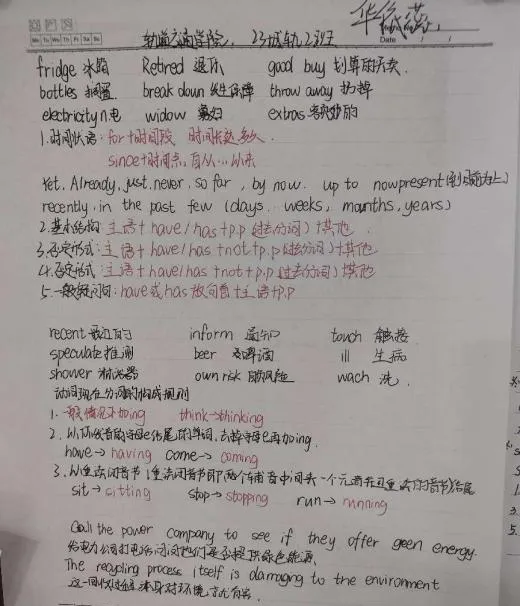 Mo Tu We Th Fr Sa Su
Date
轨道交通学院, 23城轨2班
fridge 冰箱 Retired 退休 good buy 划算的买卖.
bottles 瓶 break down 发生故障 throw away 扔掉
electricity n电 widow 寡妇 extras 额外的
1.时间状语: for+时间段 时间长达多久.
since+时间点,自从…以来
Yet. Already, just, never, so far, by now. up to now present(到目前为止)
recently, in the past few (days. weeks, mounths, years)
2.基本结构: 主语+have/has+p.p(过去分词)+其他.
3.否定形式: 主语+have/has+not+p.p(过去分词)+其他
4.否定形式: 主语+have/has+not+p.p(过去分词)+其他
5.一般疑问句: have或has放句首+主语+p.p
recent 最近的 inform 通知 touch 触摸
speculate 推测 beer 啤酒 ill 生病
shower 淋浴器 own risk 自担风险 wach 洗.
动词现在分词的构成规则
1.一般情况下加ing think→thinking
2.以不发音的字母e结尾的单词,去掉字母e再加ing.
have→having come→coming
3.以重读闭音节(重读闭音节即两个辅音中间夹一个元音并且重读的音节)结尾
sit→sitting stop→stopping run→running
Call the power company to see if they offer geen energy.
给电力公司打电话问问他们是否提供绿色能源.
The recycling process itself is damaging to the environment
这一回收过程本身对环境就有害.